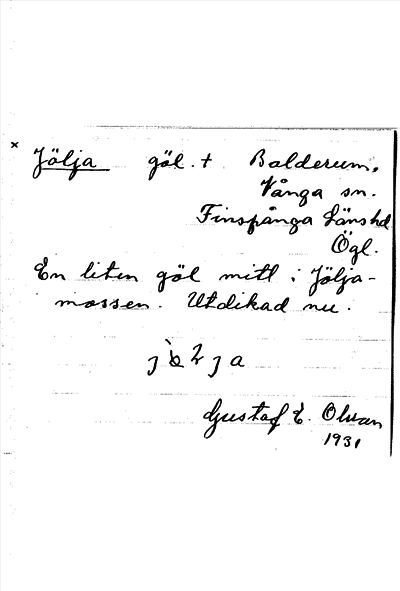 × Jölja göl. † Balderum,
Vånga sn.
Finspånga Länshd
Ögl.
En liten göl mitt i Jölja-
mossen. Utdikad nu.
Gustaf E. Olsson
1931